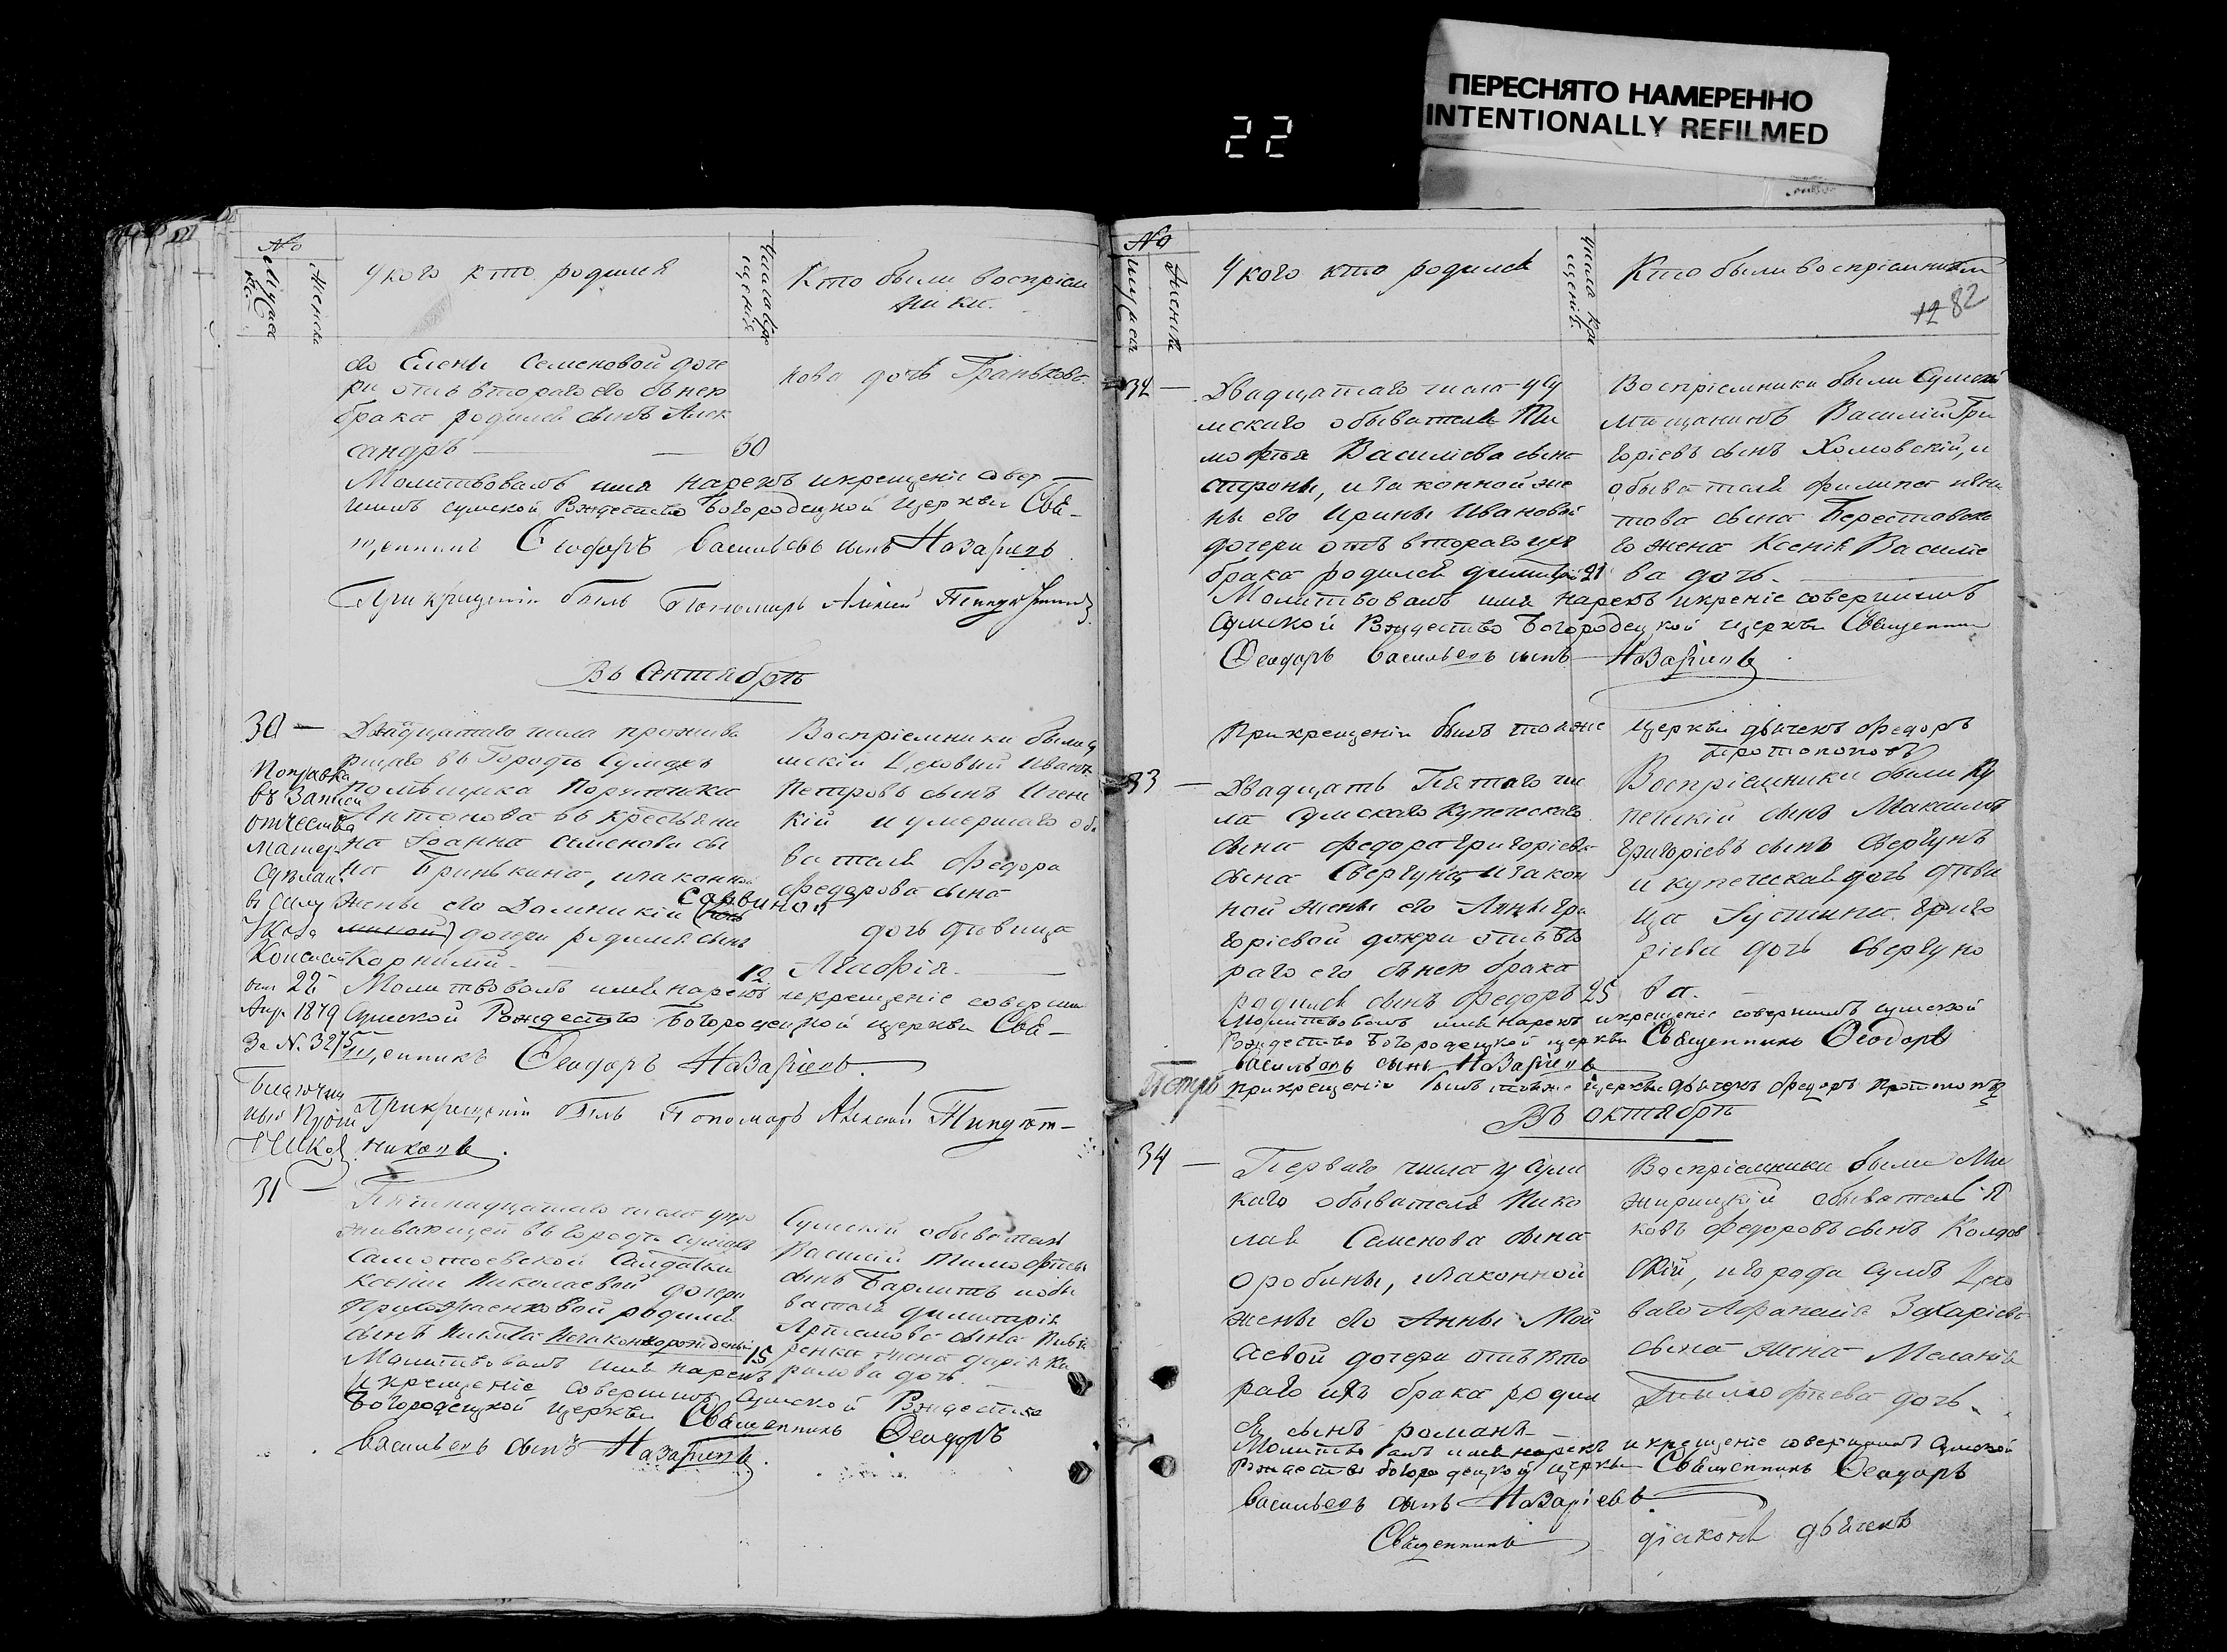 ПЕРЕСНЯТО НАМЕРЕННО
INTENTIONALLY REFILMED
22
№
Мужеска
Женска
У кого кто родился
Числа крещенія
Кто были воспріем
ники.
его Елены Семеновой доче
ри отъ втораго его съ нею
брака родился сынъ Алек
сандръ — 30
кова дочь Гранькова.
Молитвовалъ имя нарекъ и крещеніе совер
шилъ сумской Рждество Богородецкой церкви Свя-
щенникъ Ѳеодоръ Васильевъ сынъ Назарьевъ
При крещеніи былъ Пономарь Алексій
Въ Сентябрѣ
30 —
числа прожива
ющаго въ Городѣ Сумахъ
помѣщика Поручика
Антонова въ крестьяни
на Іоанна Семенова сы
на Гринькина, изаконной
жены его Домникіи Саввиной
дочери родился сынъ
Корнилій — 12
Поправка
въ Записи
отчества
матери
Сдѣлан.
въ силу
Указа
Консист.
отъ 22
Апр. 1879
За № 3275
Воспріемники были Су
мскій Цеховый Иванъ
Петровъ сынъ
кій и умершаго обы
вателя Федора
Федорова сына
дочь дѣвица
Агафія.
Молитвовалъ имя нарекъ и крещеніе соверши
Сумской Рождество Богородецкой церкви Свя-
щенникъ Ѳеодоръ Назарьевъ.
При крещеніи былъ Пономарь Алексій
никовъ.
31 —
Пятинадцатаго числа у про
живающей въ городѣ Сумахъ
Салдатки
Ксеніи Николаевой дочери
родился
сынъ Никита Незаконнорожденный 15
Сумскій обыватель
Василій Тимофѣевъ
сынъ и обы
вателя Димитрія
Артемова сына
жена Дарія Ки
рилова дочь.
Молитвовалъ имя нарекъ
и крещеніе совершилъ Сумской Рждество
Богородецкой церкви Священникъ Ѳеодоръ
Васильевъ сынъ Назарьевъ.
№
Мужеска
Женска
У кого кто родился
Числа крещенія.
Кто были воспріемники
12 82
32 —
Двадцатаго числа у Су
мскаго обывателя Ти
мофея Василіева сына
Строны, и законной же
ны его Ирины Ивановой
дочери отъ втораго ихъ
брака родился Димитрій 21
Воспріемники были Сумскій
мещанинъ Василій Гри
горіевъ сынъ Холмовскій, и
обывателя Филипа
това сына Берестовска
го жена Ксенія Василіе
ва дочь.
Молитвовалъ имя нарекъ и креніе совершилъ
Сумской Рждество Богородецкой церкви Священни
Ѳеодоръ Васильевъ сынъ Назарьевъ
При крещеніи былъ тойже церкви дьячекъ Федоръ
Протопоповъ
33 —
Двадцать Пятаго чи
сла Сумскаго Купеческаго
сына Федора Григоріева
сына Свергуна, и закон
ной жены его Анны Гри
горіевой дочери отъ вто
раго его съ нею брака
родился сынъ Федоръ 25
Воспріемники были Ку
пецкій сынъ Максимъ
Григоріевъ сынъ Свергунъ
и купеческая дочь дѣви
ца Іустина Григо
ріева дочь Свергуно
ва.
Молитвовалъ имя нарекъ и крещеніе совершилъ сумской
Рождество Богородецкой церкви Священникъ Ѳеодоръ
Васильевъ сынъ Назарьевъ
При крещеніи былъ тойже церкви дьячекъ Федоръ Протопоповъ
Въ октябрѣ
34 —
Перваго числа у Сум
скаго обывателя Нико
лая Семенова сына
Оробины, изаконной
жены его Анны Мой
сеевой дочери отъ вто
раго ихъ брака родил
ся сынъ романъ
Воспріемники были Ми
жирицкій обыватель Я
ковъ Федоровъ сынъ Колдов
скій, и города Сумъ Цехо
ваго Афанасія Захаріева
сына жена Меланія
Тимофѣева дочь.
Молитвовалъ имя нарекъ и крещеніе совершилъ Сумской
Рждество богородецкой церкви Священникъ Ѳеодоръ
Васильевъ сынъ Назаріевъ
Священникъ діаконъ дьячекъ